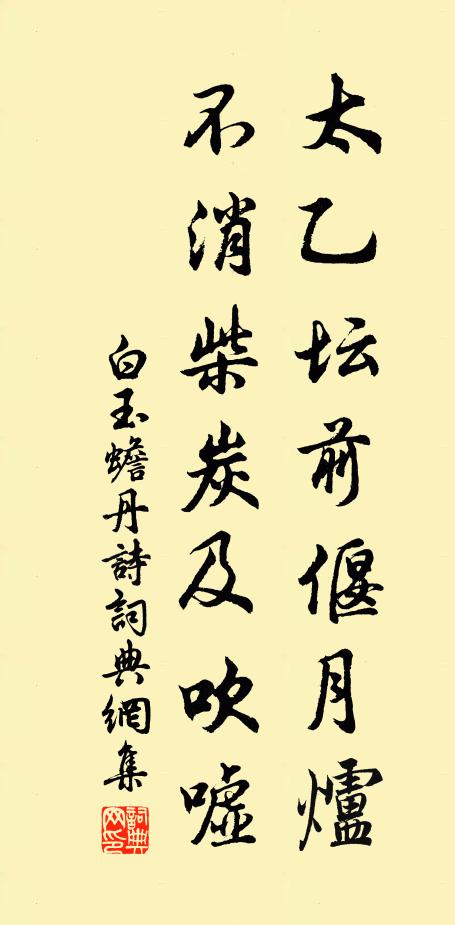 太乙坛前偃月爐
不消柴炭及吹噓
白玉蟾丹詩詞典網集
詞典網印